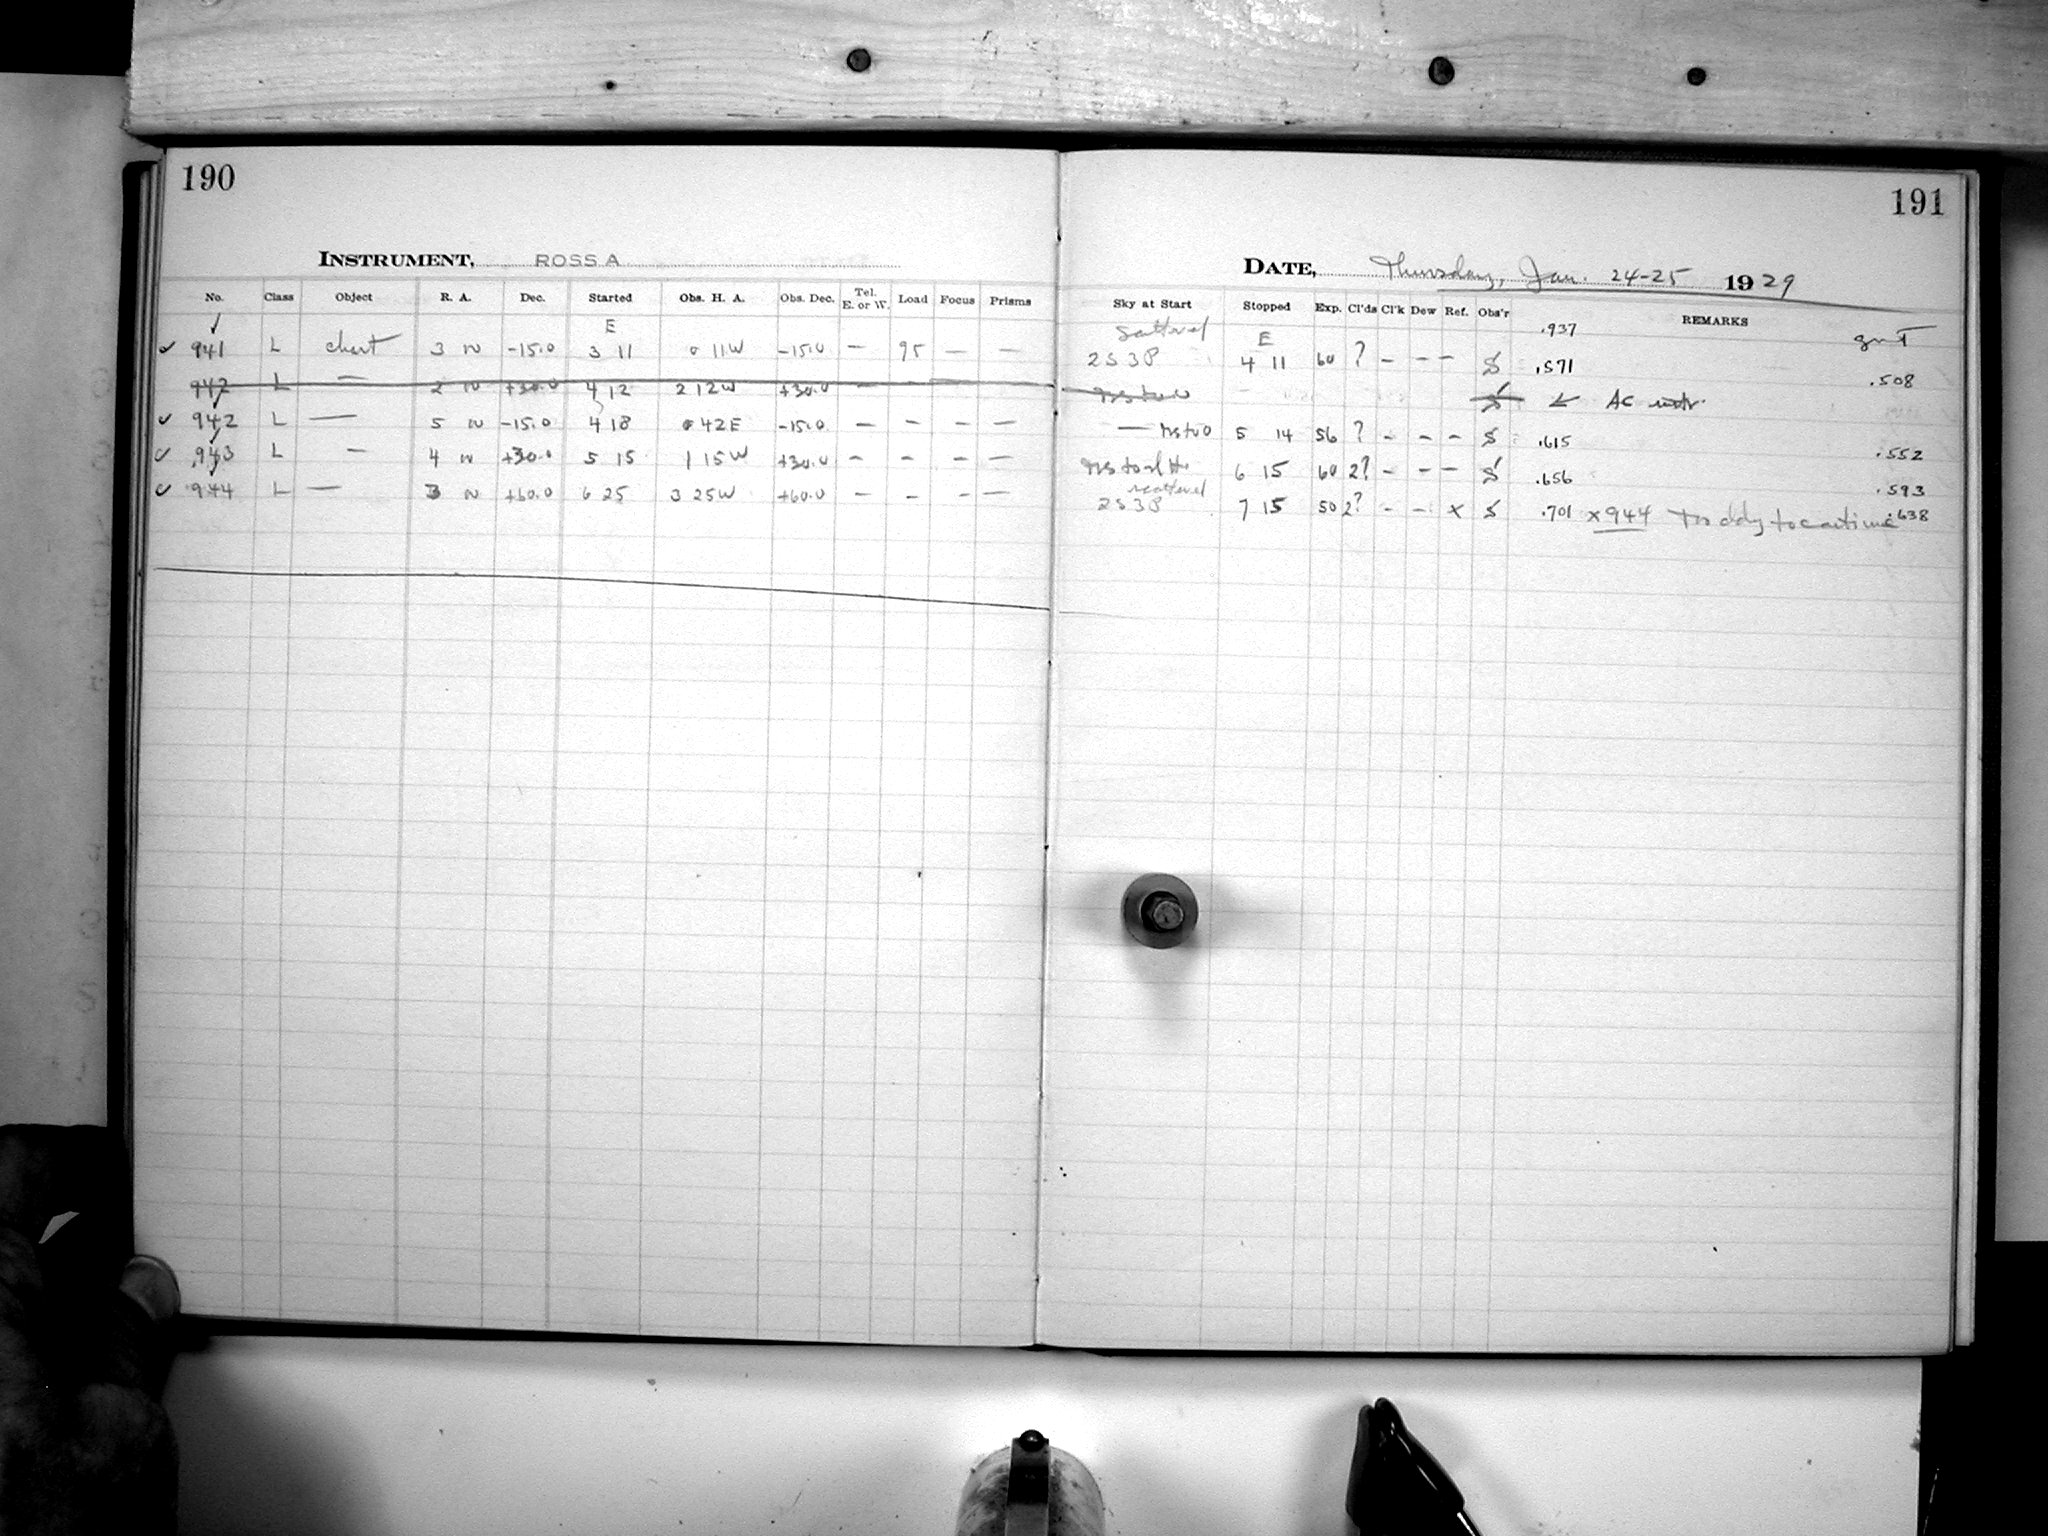 190
INSTRUMENT, ROSS A
No. Class Object R. A. Dec. Started Obs. H. A. Obs. Dec. Tel. E. or W. Load Focus Prisms
E
941 L chart 3 N -15.0 3 11 0 11W -15.0 — 95 — —
942 L — 2 N +30.0 4 12 2 12W +30.0 —
942 L — 5 N -15.0 4 18 0 42E -15.0 — — — —
943 L — 4 N +30.0 5 15 1 15W +30.0 — — — —
944 L — 3 N +60.0 6 25 3 25W +60.0 — — — —
191
DATE, Thursday, Jan. 24-25 1929
Sky at Start Stopped Exp. Cl'ds Cl'k Dew Ref. Obs'r REMARKS
E .937 gmT
2S3P 4 11 60 ? — — — S .571 .508
S ← AC
— 5 14 56 ? - - - S .615 .552
6 15 60 2? - - - S .656 .593
2S3P 7 15 50 2? - - x S .701 x944 .638